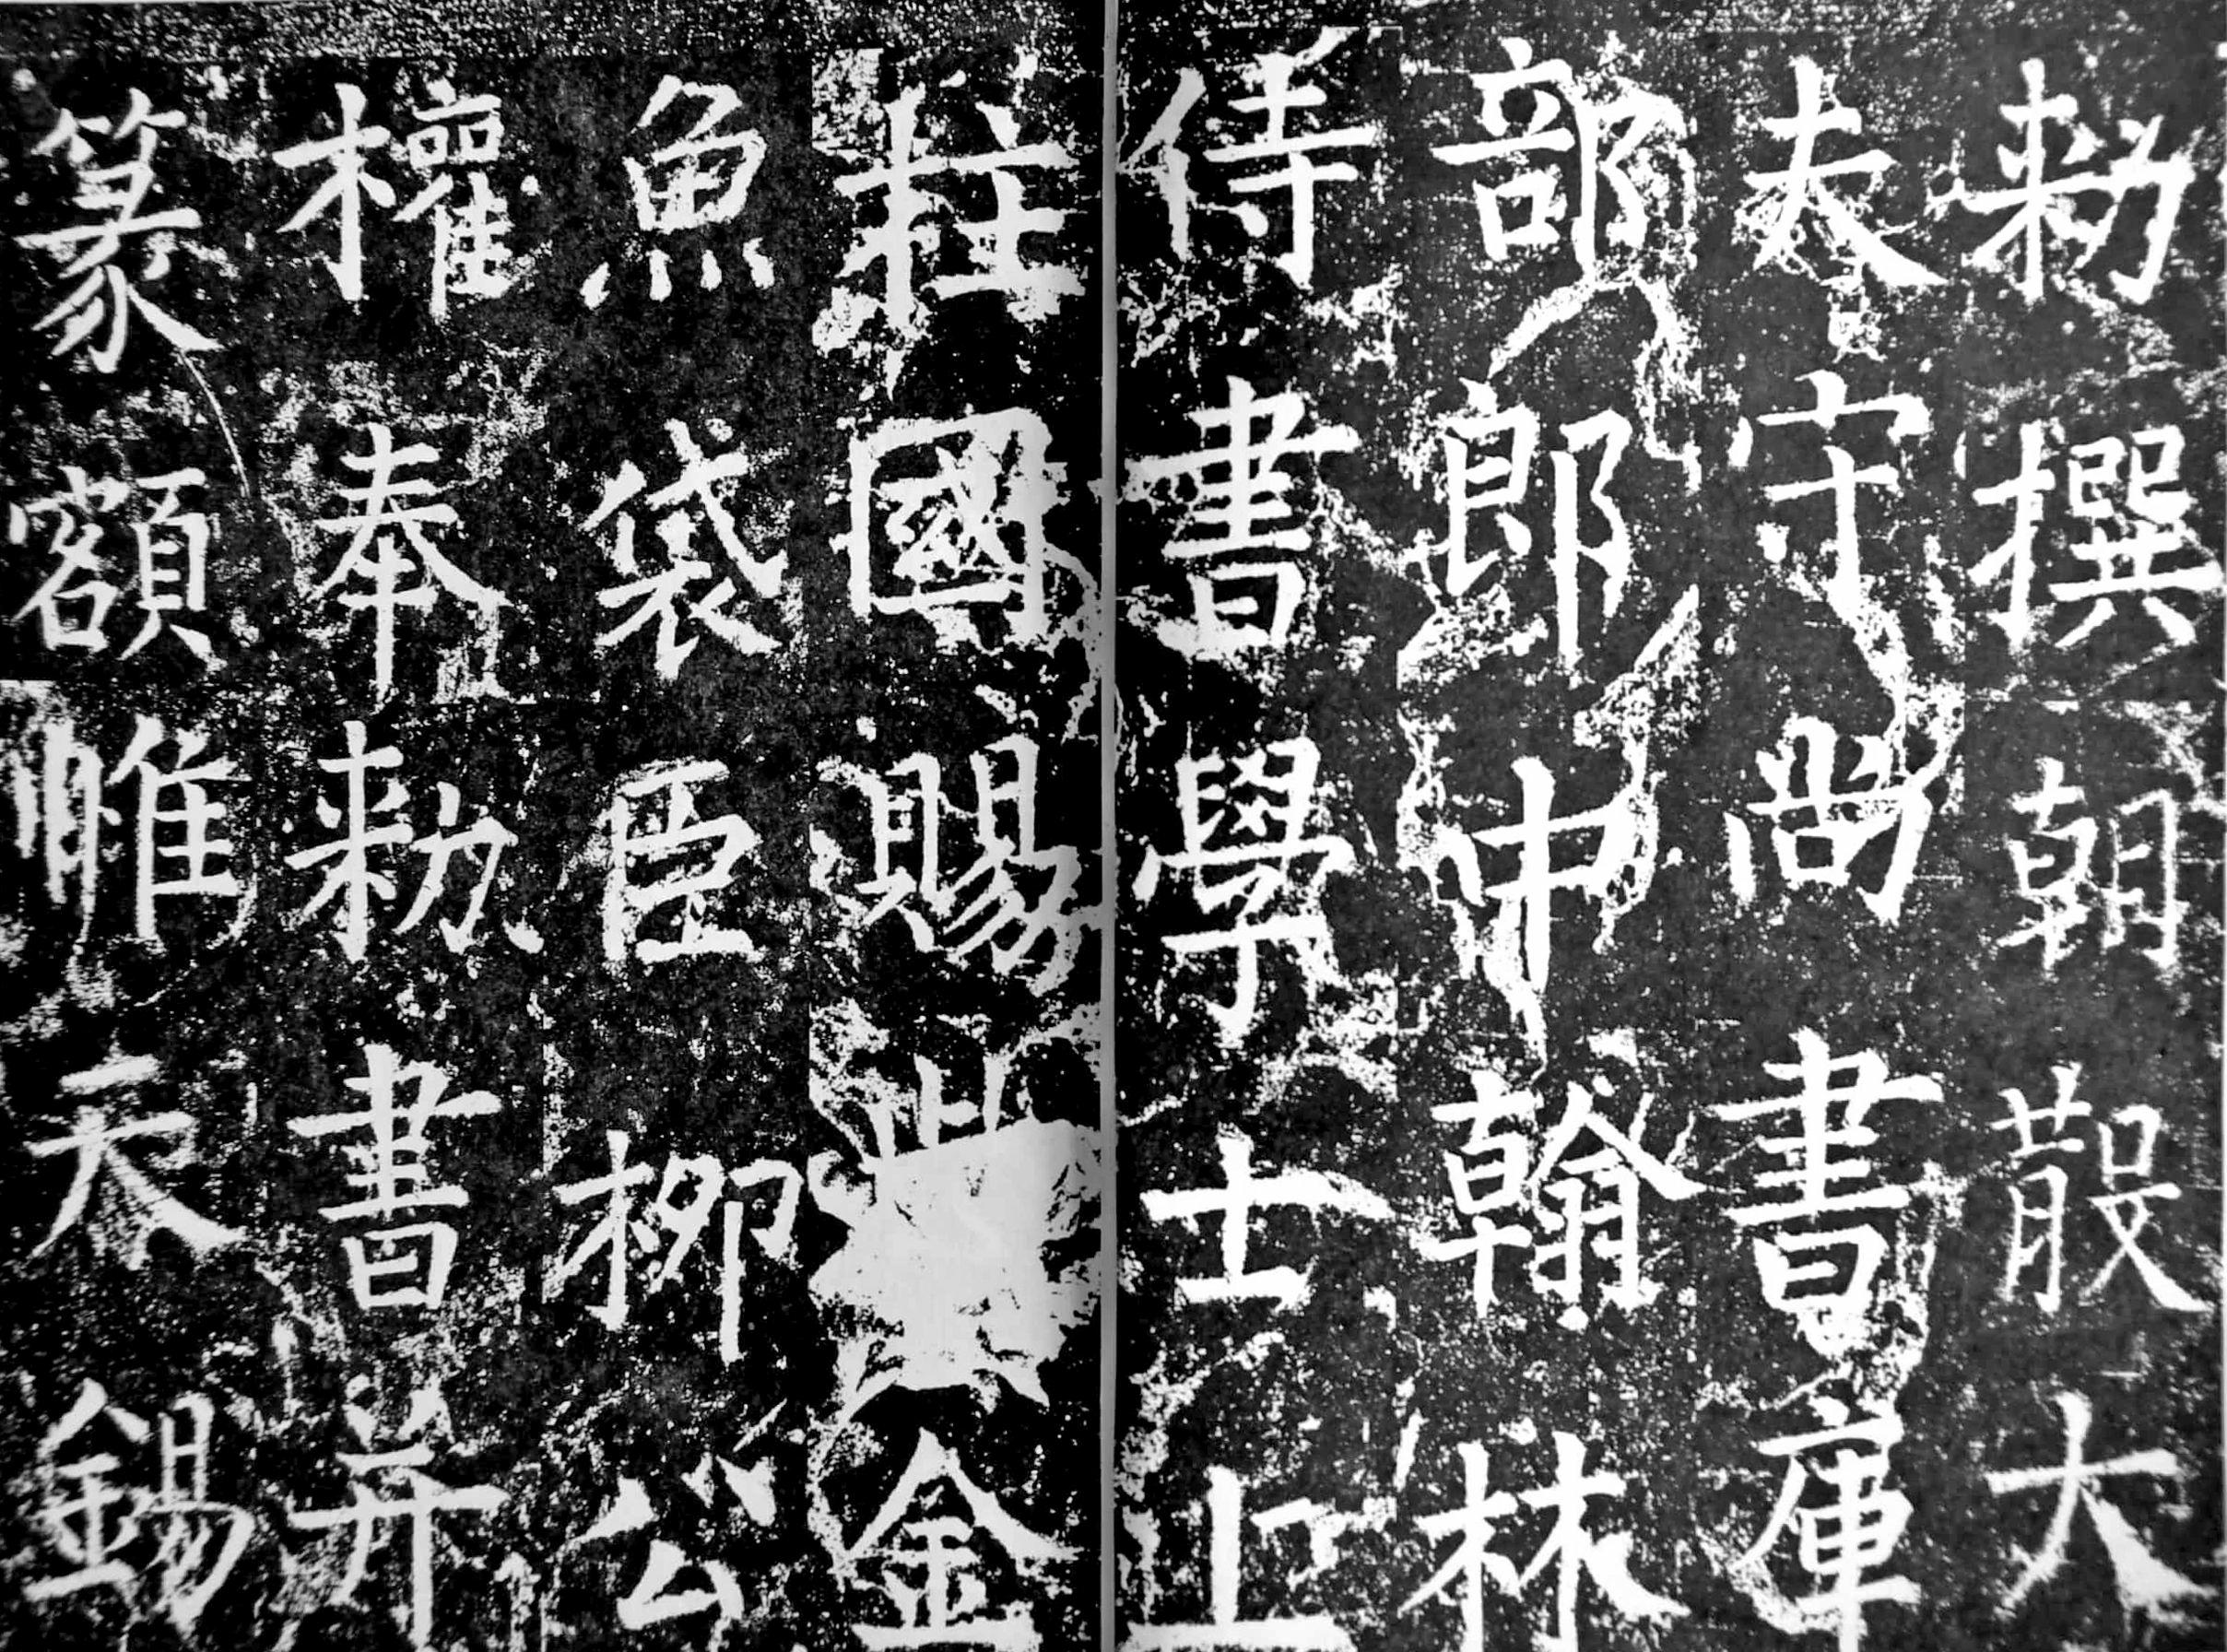 勑撰朝散大
夫守尚書庫
部郎中翰林
侍書學士上
柱國賜紫金
魚袋臣柳公
權奉勑書并
篆額惟天錫